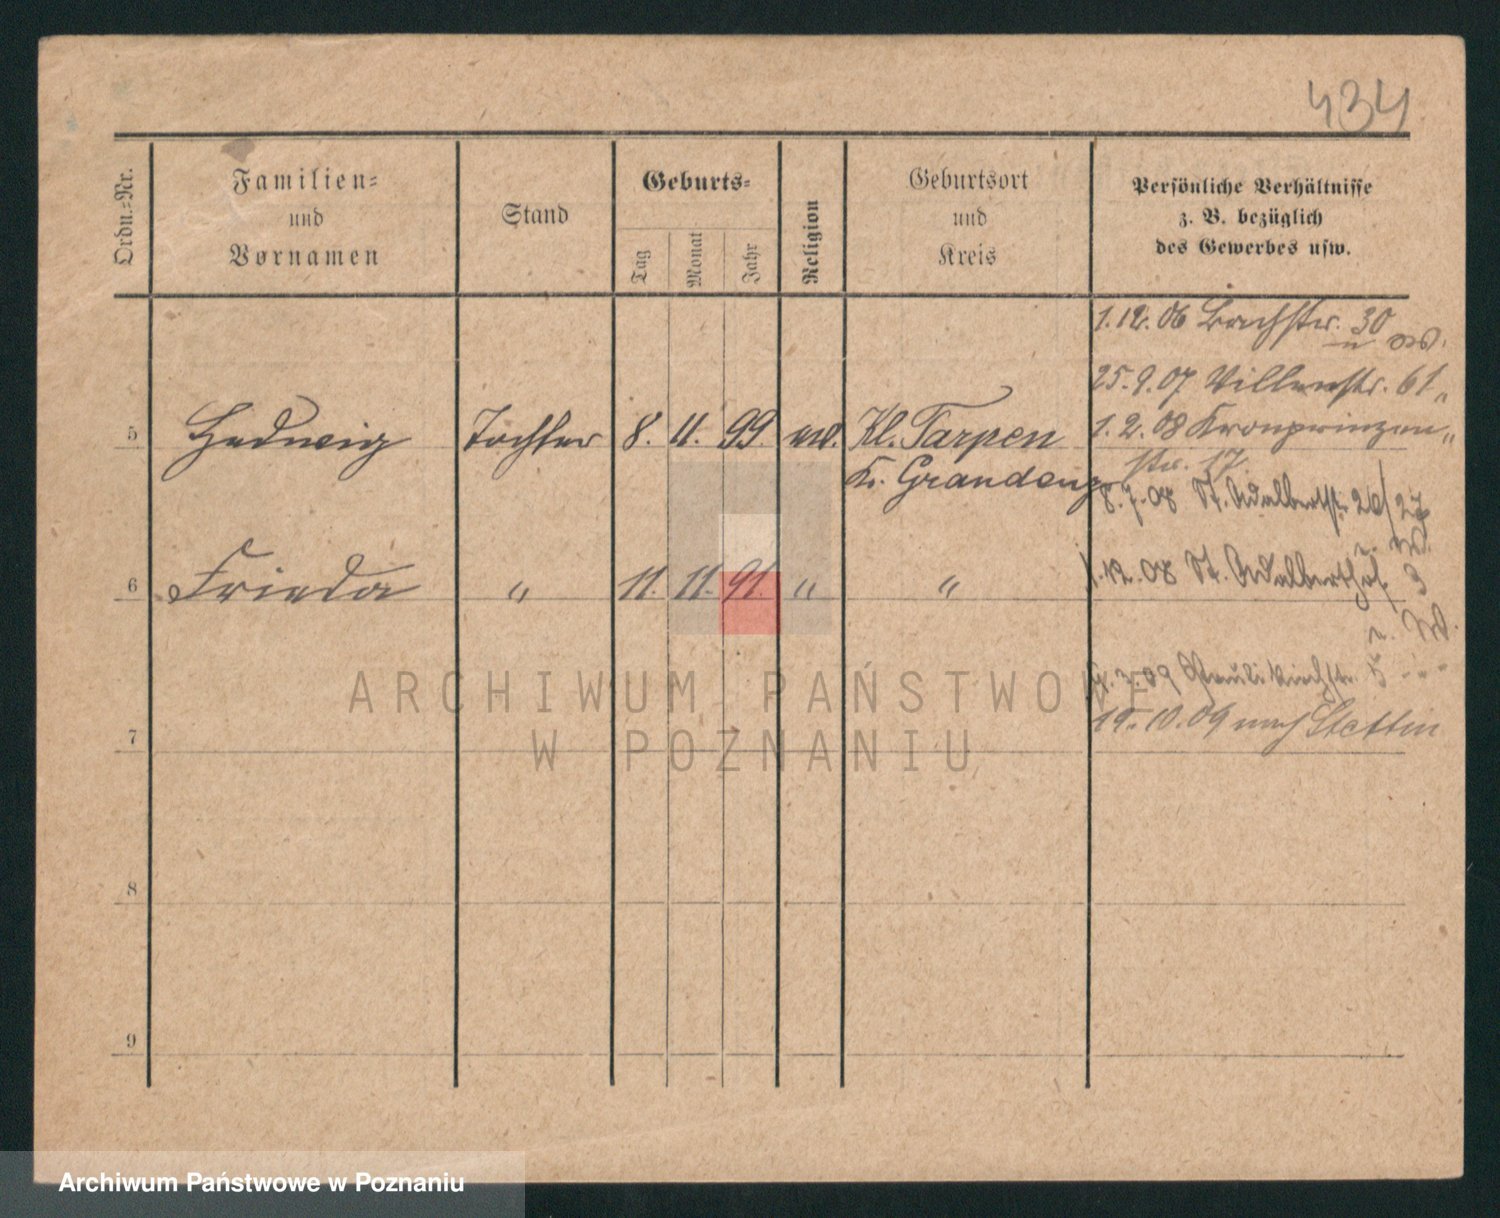 434
Ordn.-Nr.
Familien-
und
Vornamen
Stand
Geburts-
Tag
Monat
Jahr
Religion
Geburtsort
und
Kreis
Persönliche Verhältnisse
z. B. bezüglich
des Gewerbes usw.
1.12.06 Bachstr. 30
25.9.07 Villenstr. 61 "
5 Hedwig Tochter 8. 11. 99 Kl. Tarpen 1.2.08 Kronprinzen "
str. 17.
Kr. Graudenz
8.7.08 St. Adalbertstr. 26/27
6 Frieda " 11. 11. 91. " " 1.12.08 St. Adalberthof 3
09 Paulikirchstr. 5
7 19.10.09 nach Stettin
8
9
ARCHIWUM PAŃSTWOWE
W POZNANIU
Archiwum Państwowe w Poznaniu